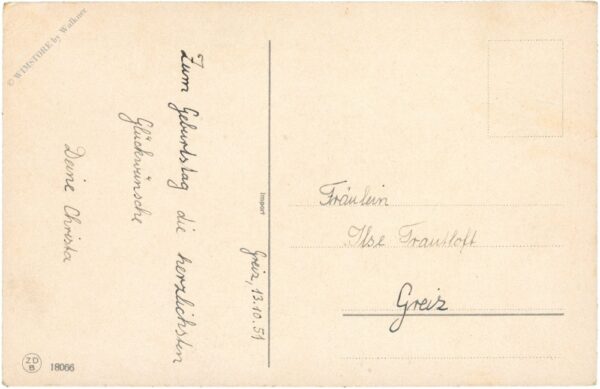 © WIMSTORE by Walkner
Greiz, 13.10.51
Zum Geburtstag die herzlichsten
Glückwünsche
Deine Christa
Import
Fräulein
Ilse Trautloft
Greiz
ZD
B
18066